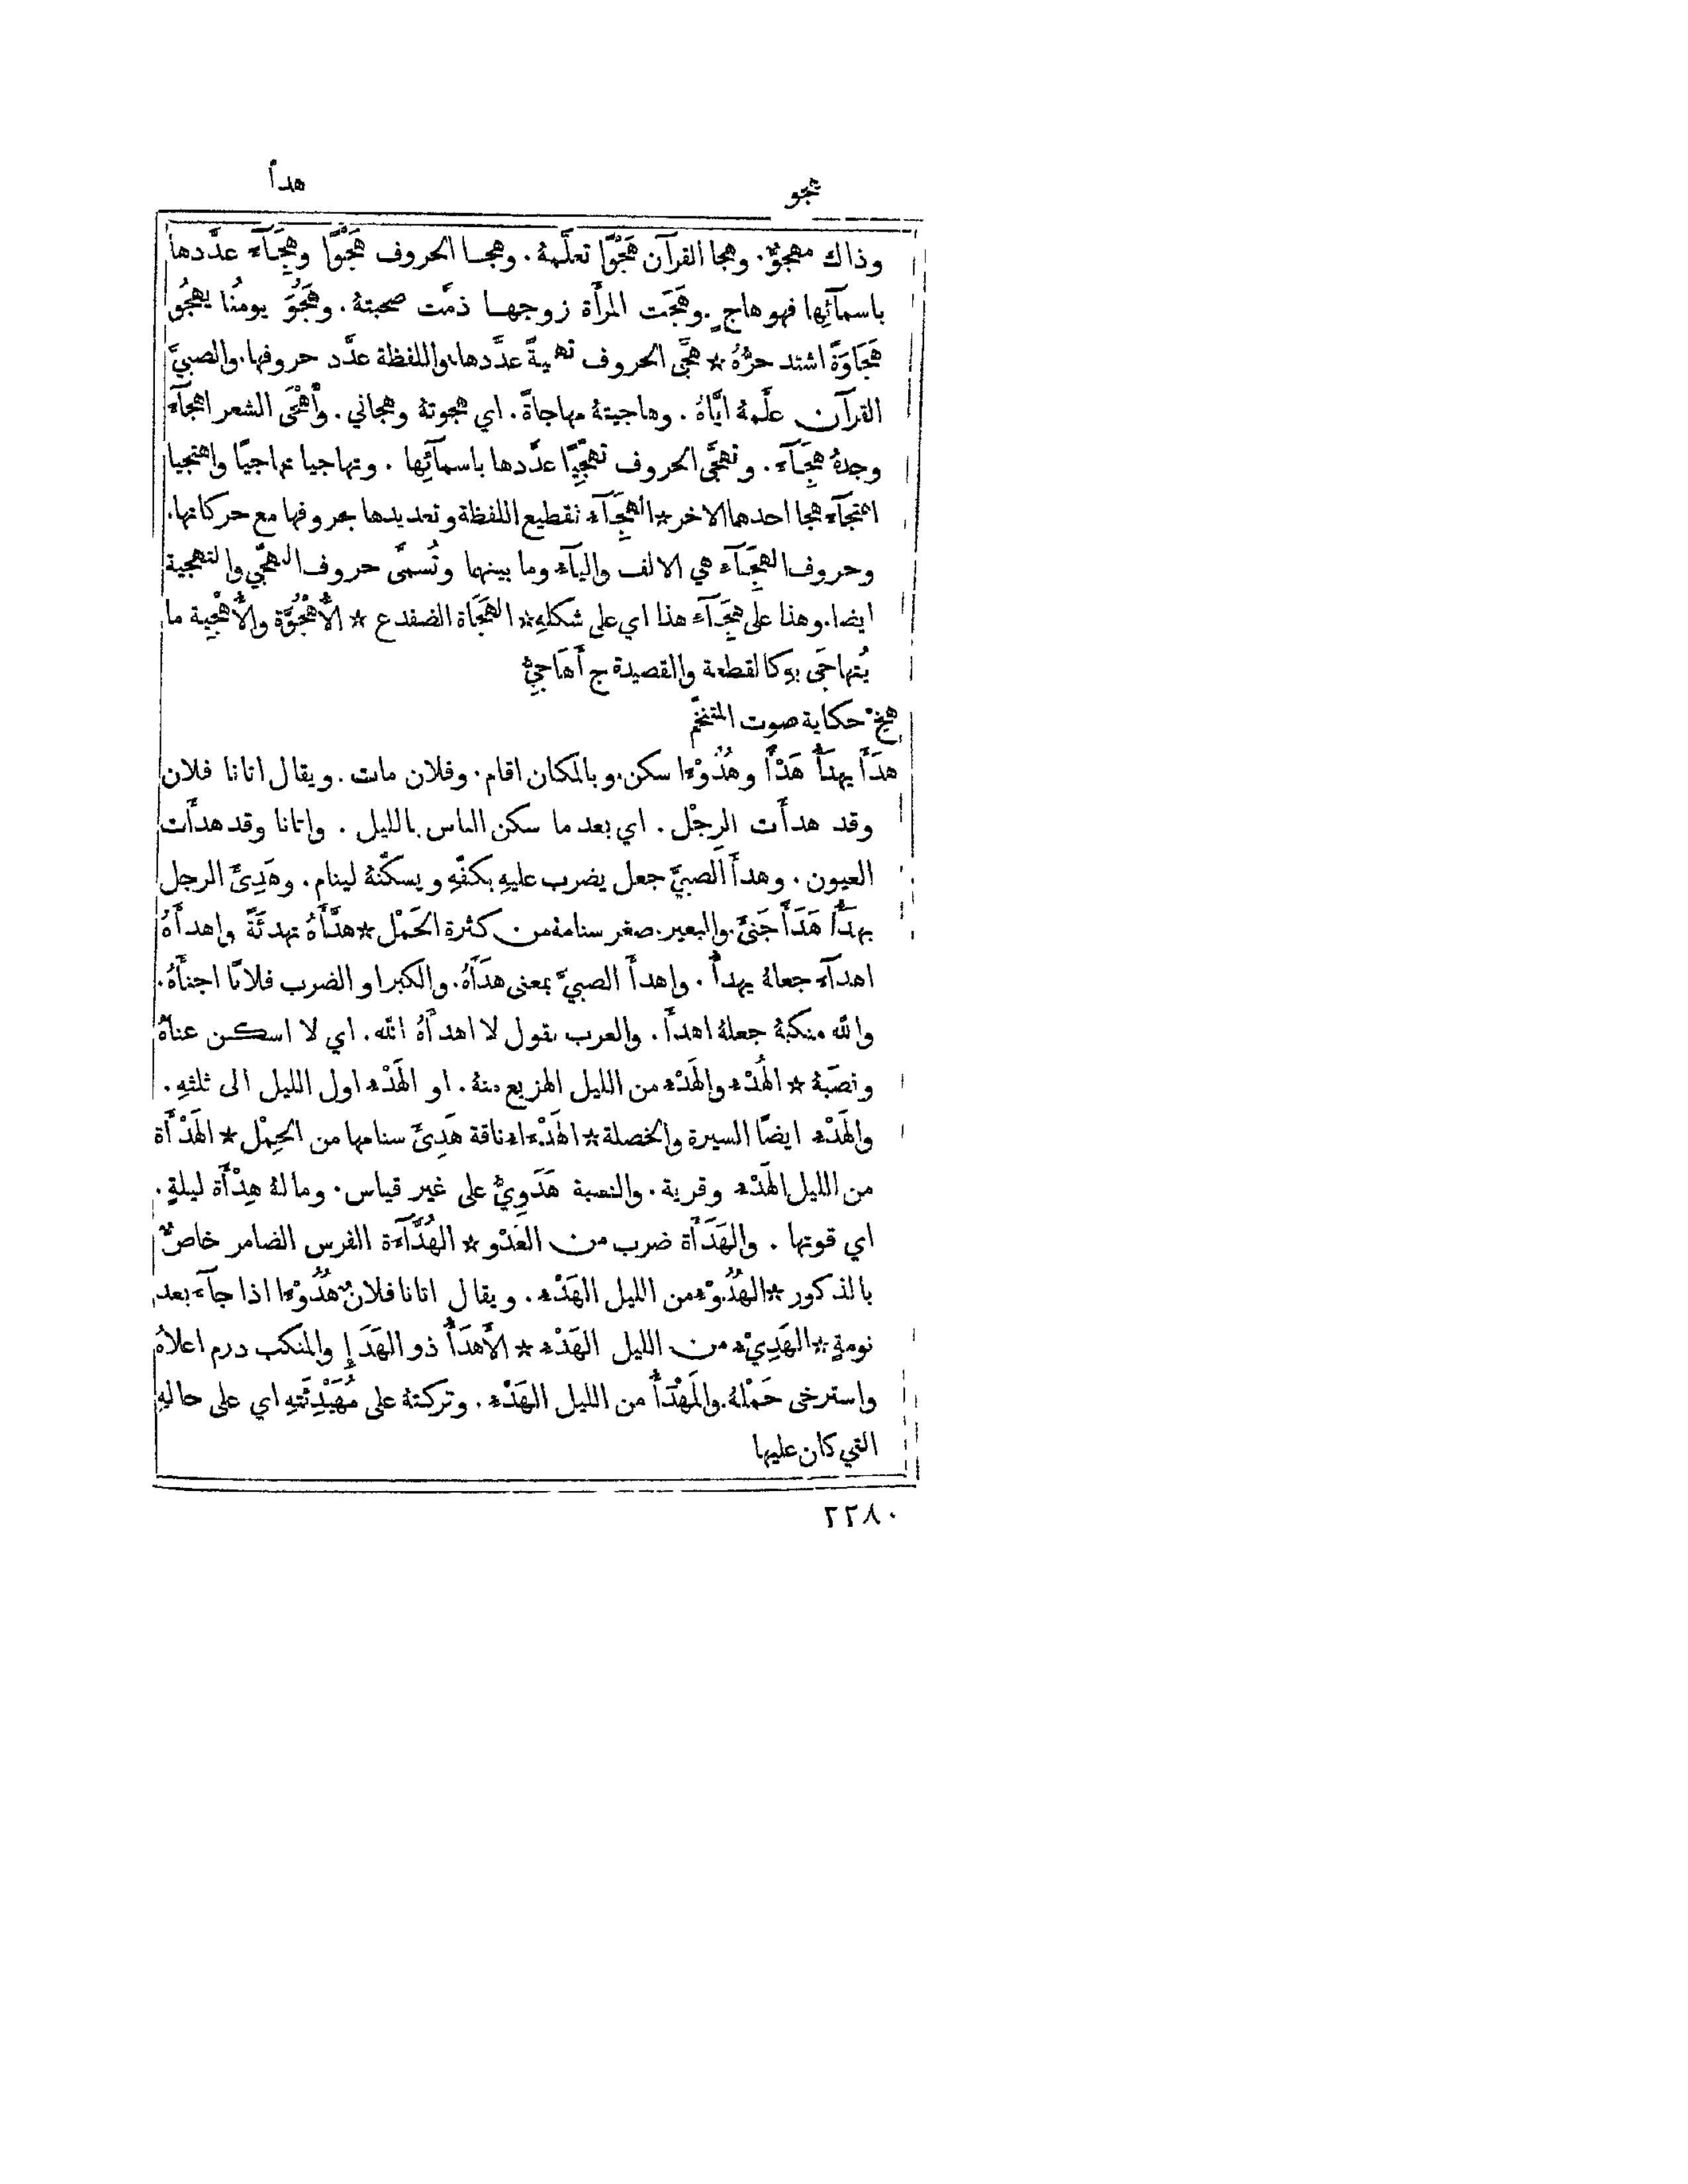 هجو
هدأ
وذاك مهجوٌّ. وهجا القرآن هَجْوًا تعلَّمهُ. وهجا الحروف هَجْوًا وهِجَآءً عدَّدها
باسمآئِها فهو هاجٍ. وهَجَت المرأَة زوجها ذمَّت صحبتهُ. وهَجُوَ يومُنا يهجُو
هَجَاوَةً اشتد حرُّهُ * هجَّى الحروف تهجيةً عدَّدها. واللفظة عدَّد حروفها. والصبيَّ
القرآن علَّمهُ ايَّاهُ. وهاجيتهُ مهاجاةً. اي هجوتهُ وهجاني. وأَهْجَى الشعر اهجآءً
وجدهُ هِجَآءً. وتهجَّى الحروف تهجِّيًا عدَّدها باسمآئِها. وتهاجيا تهاجيًا واهتجيا
اهتجآءً هجا احدهما الاخر * الهِجَآء تقطيع اللفظة وتعديدها بحروفها مع حركاتها.
وحروف الهِجَآء هي الالف واليآء وما بينهما وتُسمَّى حروف التهجّي والتهجية
ايضا. وهذا على هِجَآءِ هذا اي على شكلهِ * الهَجَاة الضفدع * الأُهْجُوَّة والأُهْجِية ما
يُتهاجَى بهِ كالقطعة والقصيدة ج أَهَاجِيُّ
هِخْ حكاية صوت المتنخّم
هدَأَ يهدَأُ هَدْأً وهُدُوْءًا سكن. وبالمكان اقام. وفلان مات. ويقال اتانا فلان
وقد هدأَت الرِجْل. اي بعد ما سكن الناس بالليل. واتانا وقد هدأَت
العيون. وهدأَ الصبيَّ جعل يضرب عليهِ بكفّهِ ويسكّنهُ لينام. وهَدِئَ الرجل
يهدَأُ هَدَأً جَنِئَ. والبعير صغر سنامهُ من كثرة الحَمْل * هدَّأَهُ تهدئَةً واهدأَهُ
اهدآءً جعلهُ يهدأُ. واهدأَ الصبيَّ بمعنى هدَأَهُ. والكبر او الضرب فلانًا اجنأَهُ.
والله منكبهُ جعلهُ اهدأَ. والعرب تقول لا اهدأَهُ الله. اي لا اسكن عناهُ
ونصَبهُ * الهُدْء والهَدْء من الليل الهزيع منهُ. او الهَدْء اول الليل الى ثلثهِ.
والهَدْء ايضًا السيرة والخصلة * الهَدْءاء ناقة هَدِئَ سنامها من الحِمْل * الهَدْأَة
من الليل الهَدْء وقرية. والنسبة هَدَوِيٌّ على غير قياس. وما لهُ هِدْأَة ليلةٍ.
اي قوتها. والهَدَأَة ضرب من العَدْو * الهُدَّآءَة الفرس الضامر خاصٌّ
بالذكور * الهُدُوْء من الليل الهَدْء. ويقال اتانا فلانٌ هُدُوْءًا اذا جآءَ بعد
نومةٍ * الهَدِيْء من الليل الهَدْء * الأَهدَأُ ذو الهَدَإِ والمنكب درم اعلاهُ
واسترخى حَمْلهُ. والمَهْدَأُ من الليل الهَدْء. وتركتهُ على مُهَيْدِئَتهِ اي على حالهِ
التي كان عليها
٢٢٨٠